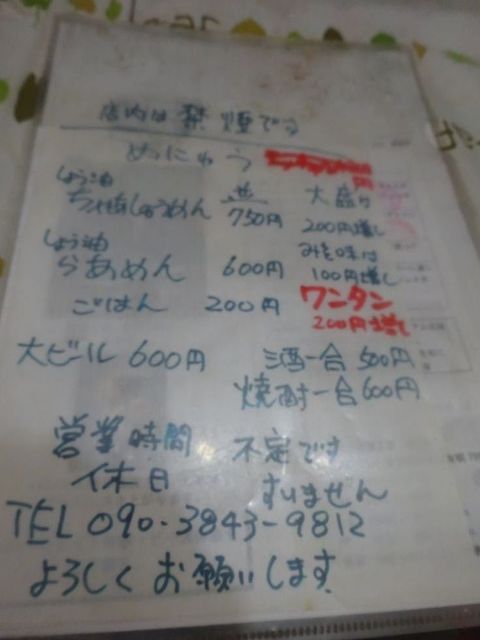 店内は禁煙です
めにゅう
しょう油 並 大盛り
ちゃあしゅうめん 750円 200円増し
しょう油 みそ味は
らあめん 600円 100円増し
ごはん 200円 ワンタン
200円増し
大ビール 600円 酒一合 500円
焼酎一合 600円
営業時間 不定です
休日 すいません
TEL 090-3843-9812
よろしくお願いします